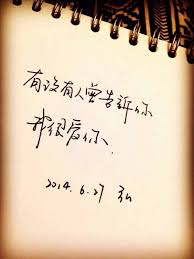 有没有人曾告诉你
我很爱你
2014.6.27 弘